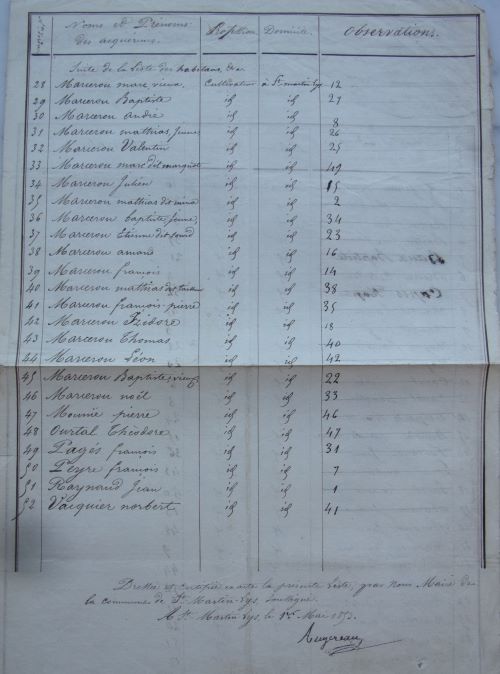 Noms et Prénoms des acquereurs. Profession Domicile. Observations.
Suite de la Liste des habitans, &a
28 Marcerou marc, vieux. Cultivateur à St martin Lys 12
29 Marcerou Baptiste id id 27
30 Marcerou andré id id 8
31 Marcerou mathias, jeune id id 26
32 Marcerou Valentin id id 25
33 Marcerou marc dit marquet id id 49
34 Marcerou Julien id id 15
35 Marcerou mathias dit id id 2
36 Marcerou baptiste, jeune, id id 34
37 Marcerou Etienne dit id id 23
38 Marcerou amans id id 16
39 Marcerou françois id id 14
40 Marcerou mathias dit id id 38
41 Marcerou françois-pierre id id 35
42 Marcerou Izidore id id 18
43 Marcerou Thomas id id 40
44 Marcerou Léon id id 42
45 Marcerou Baptiste, vieux id id 22
46 Marcerou noël id id 33
47 Mounié pierre id id 46
48 Ourtal Théodore id id 47
49 Pagés françois id id 31
50 Peyre françois id id 7
51 Raynaud Jean id id 1
52 Vacquier norbert id id 41
Dressée et certifiée exacte la présente Liste, par nous Maire de
la commune de St Martin-Lys, soussigné.
A St Martin Lys, le 1er Mai
Augereau